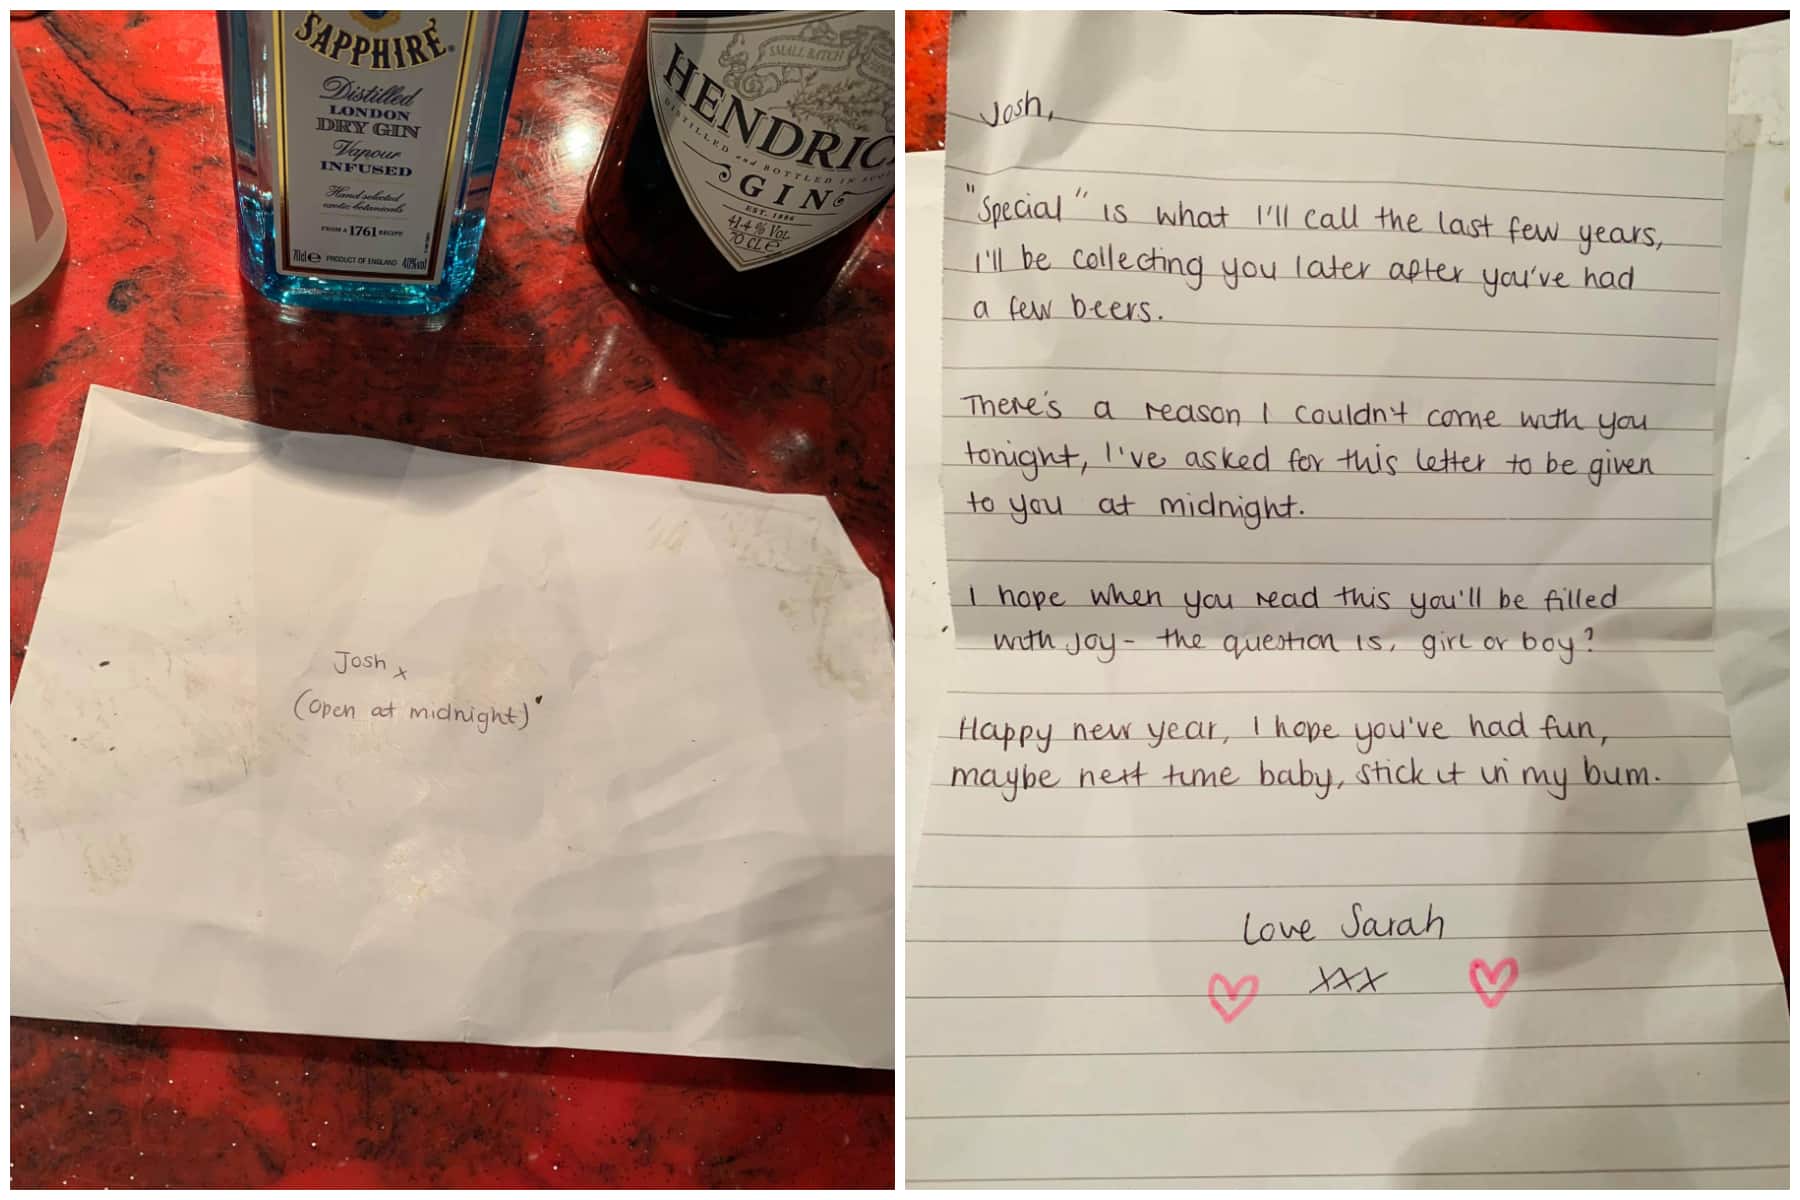 SAPPHIRE®
Distilled
LONDON
DRY GIN
Vapour
INFUSED
Hand selected
exotic botanicals
FROM A 1761 RECIPE
70cl e PRODUCT OF ENGLAND 40%vol
SMALL BATCH
HENDRIC
DISTILLED and BOTTLED IN
GIN
EST. 1886
41.4% Vol
70 CL e
Josh x
(open at midnight)
Josh,
"Special" is what I'll call the last few years,
I'll be collecting you later after you've had
a few beers.
There's a reason I couldn't come with you
tonight, I've asked for this letter to be given
to you at midnight.
I hope when you read this you'll be filled
with joy- the question is, girl or boy?
Happy new year, I hope you've had fun,
maybe next time baby, stick it in my bum.
Love Sarah
xxx